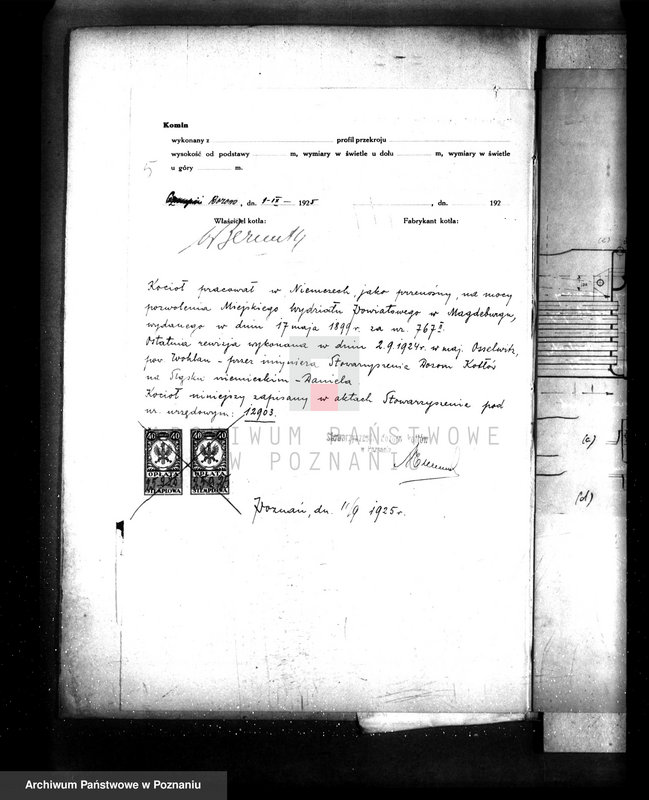 Komin
wykonany z profil przekroju
wysokość od podstawy m, wymiary w świetle u dołu m, wymiary w świetle
u góry m.
5
, dn. 1-IX- 1925 , dn. 192
Właściciel kotła: Fabrykant kotła:
Kocioł pracował w Niemczech, jako przenośny, na mocy
pozwolenia Miejskiego Wydziału Powiatowego w Magdeburgu,
wydanego w dniu 17 maja 1899 r. za nr. 767
Ostatnia rewizja wykonana w dniu 2.9.1924 r. w maj. Osselwitz,
pow. Wohlau - przez inżyniera Stowarzyszenia Dozoru Kotłów
na Śląsku niemieckim - Daniela
Kocioł niniejszy zapisany w aktach Stowarzyszenia pod
nr. urzędowym: 12903.
40 40 40 40
OPŁATA OPŁATA
STEMPLOWA STEMPLOWA
Stowarzyszenie dozoru kotłów
w Poznaniu
ARCHIWUM PAŃSTWOWE
W POZNANIU
Poznań, dn. 11/9 1925 r.
(c)
(a)
(d)
Archiwum Państwowe w Poznaniu